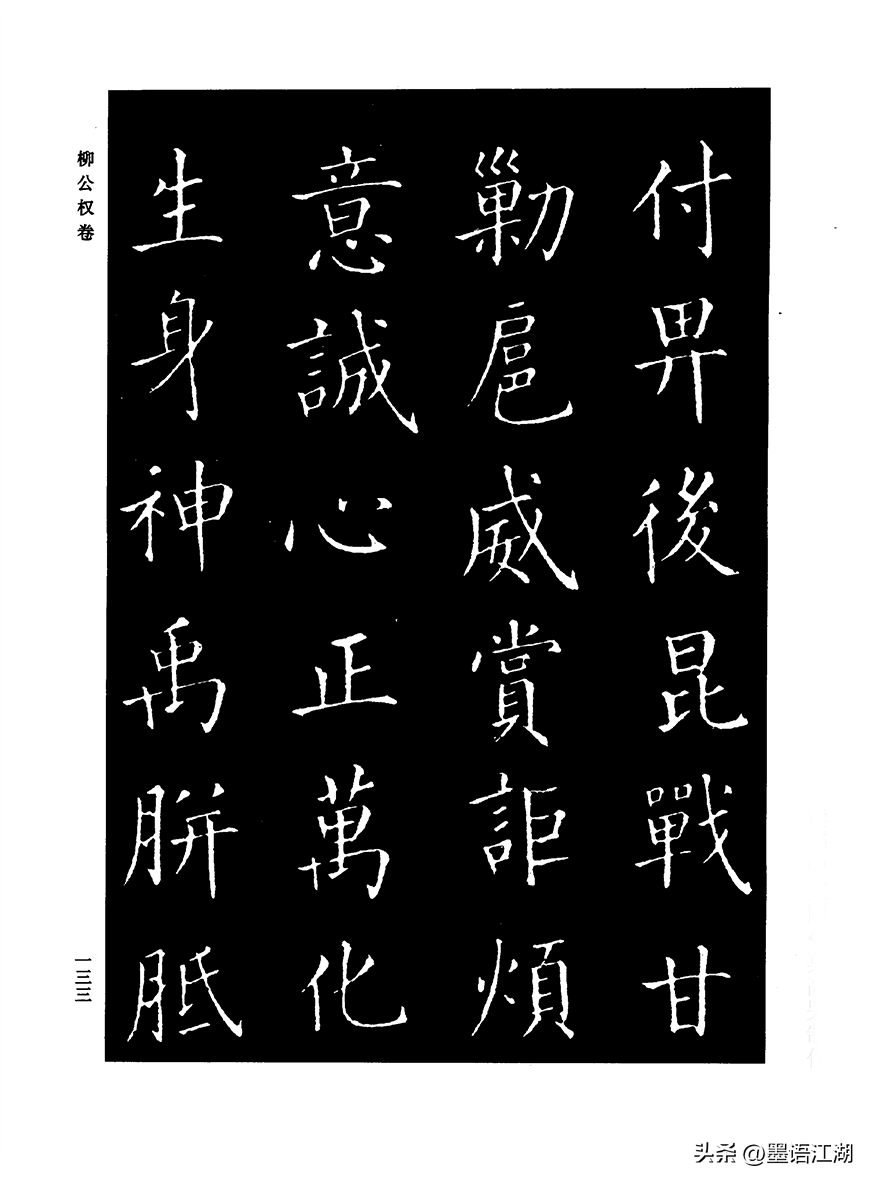 付畀後昆戰甘
勦扈威賞詎煩
意誠心正萬化
生身神禹胼胝
柳公权卷
一三三
头条 @墨语江湖